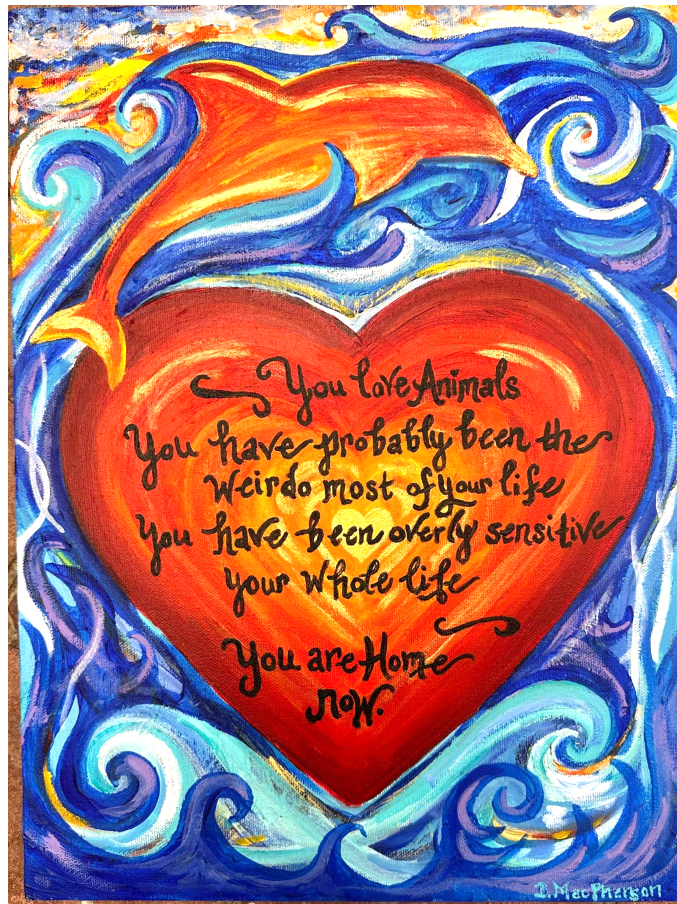 You love Animals
You have probably been the
Weirdo most of your life
You have been overly sensitive
your whole life
You are Home
now.
B. MacPherson